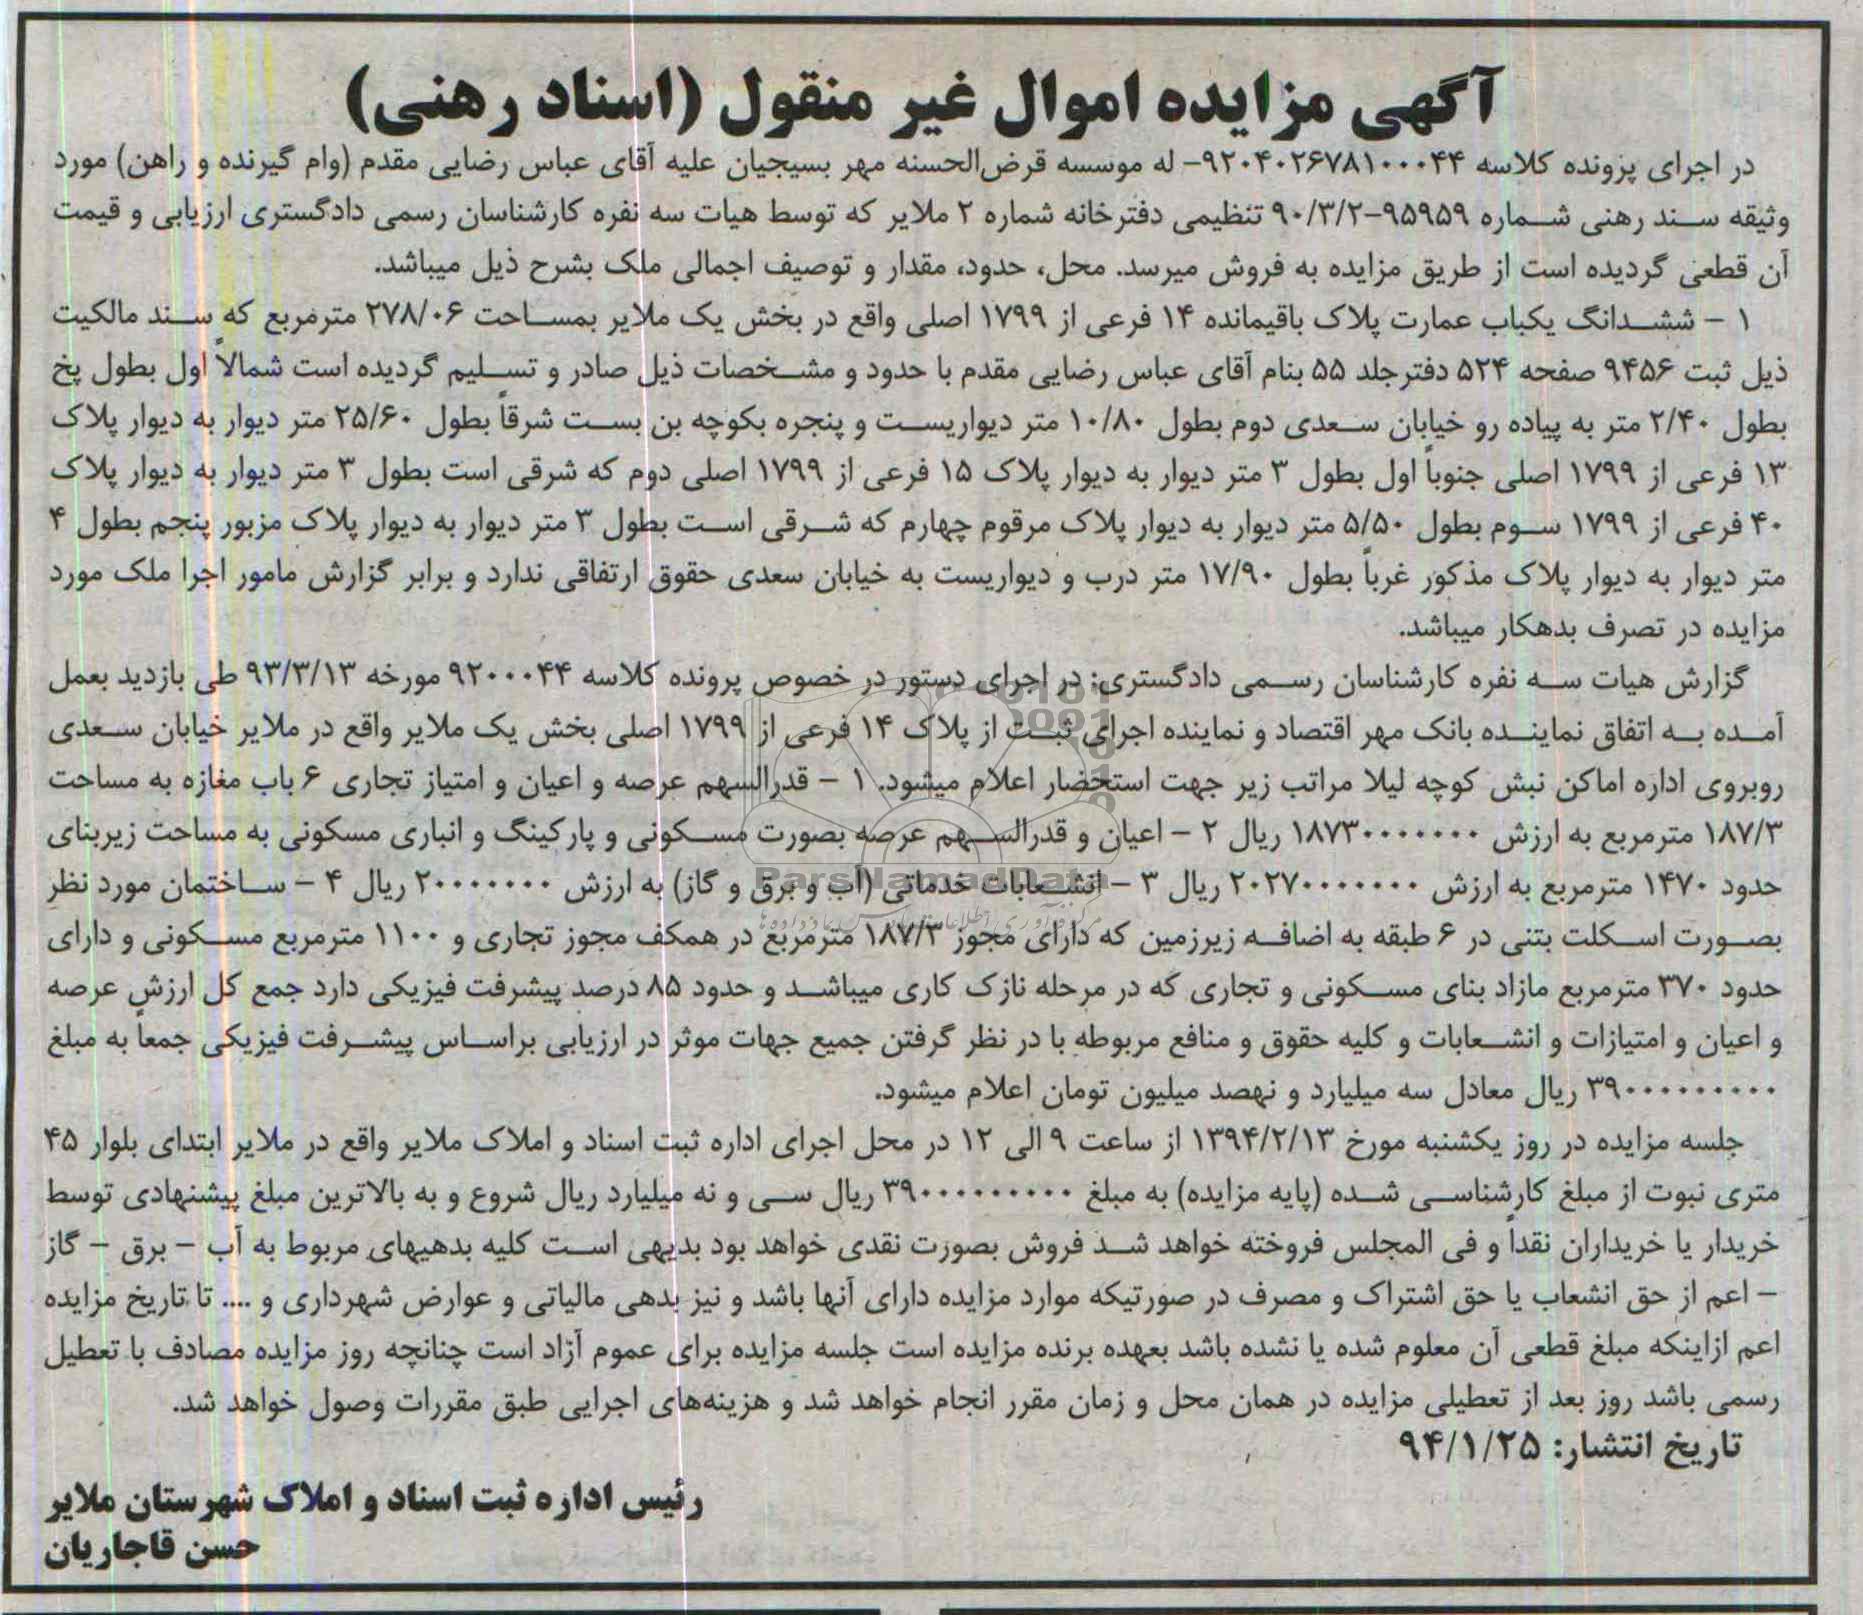 آگهی مزایده اموال غیر منقول (اسناد رهنی)
در اجرای پرونده کلاسه ۹۲۰۴۰۲۶۷۸۱۰۰۰۴۴- له موسسه قرض‌الحسنه مهر بسیجیان علیه آقای عباس رضایی مقدم (وام گیرنده و راهن) مورد
وثیقه سند رهنی شماره ۹۵۹۵۹-۹۰/۳/۲ تنظیمی دفترخانه شماره ۲ ملایر که توسط هیات سه نفره کارشناسان رسمی دادگستری ارزیابی و قیمت
آن قطعی گردیده است از طریق مزایده به فروش میرسد. محل، حدود، مقدار و توصیف اجمالی ملک بشرح ذیل میباشد.
۱ – ششدانگ یکباب عمارت پلاک باقیمانده ۱۴ فرعی از ۱۷۹۹ اصلی واقع در بخش یک ملایر بمساحت ۲۷۸/۰۶ مترمربع که سند مالکیت
ذیل ثبت ۹۴۵۶ صفحه ۵۲۴ دفترجلد ۵۵ بنام آقای عباس رضایی مقدم با حدود و مشخصات ذیل صادر و تسلیم گردیده است شمالاً اول بطول پخ
بطول ۲/۴۰ متر به پیاده رو خیابان سعدی دوم بطول ۱۰/۸۰ متر دیواریست و پنجره بکوچه بن بست شرقاً بطول ۲۵/۶۰ متر دیوار به دیوار پلاک
۱۳ فرعی از ۱۷۹۹ اصلی جنوباً اول بطول ۳ متر دیوار به دیوار پلاک ۱۵ فرعی از ۱۷۹۹ اصلی دوم که شرقی است بطول ۳ متر دیوار به دیوار پلاک
۴۰ فرعی از ۱۷۹۹ سوم بطول ۵/۵۰ متر دیوار به دیوار پلاک مرقوم چهارم که شرقی است بطول ۳ متر دیوار به دیوار پلاک مزبور پنجم بطول ۴
متر دیوار به دیوار پلاک مذکور غرباً بطول ۱۷/۹۰ متر درب و دیواریست به خیابان سعدی حقوق ارتفاقی ندارد و برابر گزارش مامور اجرا ملک مورد
مزایده در تصرف بدهکار میباشد.
گزارش هیات سه نفره کارشناسان رسمی دادگستری: در اجرای دستور در خصوص پرونده کلاسه ۹۲۰۰۰۴۴ مورخه ۹۳/۳/۱۳ طی بازدید بعمل
آمده به اتفاق نماینده بانک مهر اقتصاد و نماینده اجرای ثبت از پلاک ۱۴ فرعی از ۱۷۹۹ اصلی بخش یک ملایر واقع در ملایر خیابان سعدی
روبروی اداره اماکن نبش کوچه لیلا مراتب زیر جهت استحضار اعلام میشود. ۱ – قدرالسهم عرصه و اعیان و امتیاز تجاری ۶ باب مغازه به مساحت
۱۸۷/۳ مترمربع به ارزش ۱۸۷۳۰۰۰۰۰۰۰ ریال ۲ – اعیان و قدرالسهم عرصه بصورت مسکونی و پارکینگ و انباری مسکونی به مساحت زیربنای
حدود ۱۴۷۰ مترمربع به ارزش ۲۰۲۷۰۰۰۰۰۰۰ ریال ۳ – انشعابات خدماتی (آب و برق و گاز) به ارزش ۲۰۰۰۰۰۰۰ ریال ۴ – ساختمان مورد نظر
بصورت اسکلت بتنی در ۶ طبقه به اضافه زیرزمین که دارای مجوز ۱۸۷/۳ مترمربع در همکف مجوز تجاری و ۱۱۰۰ مترمربع مسکونی و دارای
حدود ۳۷۰ مترمربع مازاد بنای مسکونی و تجاری که در مرحله نازک کاری میباشد و حدود ۸۵ درصد پیشرفت فیزیکی دارد جمع کل ارزش عرصه
و اعیان و امتیازات و انشعابات و کلیه حقوق و منافع مربوطه با در نظر گرفتن جمیع جهات موثر در ارزیابی براساس پیشرفت فیزیکی جمعاً به مبلغ
۳۹۰۰۰۰۰۰۰۰۰ ریال معادل سه میلیارد و نهصد میلیون تومان اعلام میشود.
جلسه مزایده در روز یکشنبه مورخ ۱۳۹۴/۲/۱۳ از ساعت ۹ الی ۱۲ در محل اجرای اداره ثبت اسناد و املاک ملایر واقع در ملایر ابتدای بلوار ۴۵
متری نبوت از مبلغ کارشناسی شده (پایه مزایده) به مبلغ ۳۹۰۰۰۰۰۰۰۰۰ ریال سی و نه میلیارد ریال شروع و به بالاترین مبلغ پیشنهادی توسط
خریدار یا خریداران نقداً و فی المجلس فروخته خواهد شد فروش بصورت نقدی خواهد بود بدیهی است کلیه بدهیهای مربوط به آب – برق – گاز
– اعم از حق انشعاب یا حق اشتراک و مصرف در صورتیکه موارد مزایده دارای آنها باشد و نیز بدهی مالیاتی و عوارض شهرداری و .... تا تاریخ مزایده
اعم ازاینکه مبلغ قطعی آن معلوم شده یا نشده باشد بعهده برنده مزایده است جلسه مزایده برای عموم آزاد است چنانچه روز مزایده مصادف با تعطیل
رسمی باشد روز بعد از تعطیلی مزایده در همان محل و زمان مقرر انجام خواهد شد و هزینه‌های اجرایی طبق مقررات وصول خواهد شد.
تاریخ انتشار: ۹۴/۱/۲۵
رئیس اداره ثبت اسناد و املاک شهرستان ملایر
حسن قاجاریان
ParsNamadData